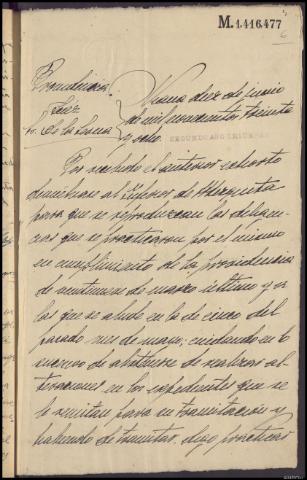 M.1.416.477
6
Providencia
Juez
Sr. de la
diez de junio
de mil novecientos treinta
y ocho.
SEGUNDO AÑO TRIUNFAL
Por recibido el anterior exhorto
al Inferior de
para que se reproduzcan las diligen-
cias que se practicaron por el mismo
en cumplimiento de la providencia
de veintinueve de marzo último y a
las que se alude en la de cinco del
pasado mes de mayo; cuidando en lo
sucesivo de abstenerse de realizar al-
teraciones en los expedientes que se
le remitan para su tramitación y
habiendo de practicar